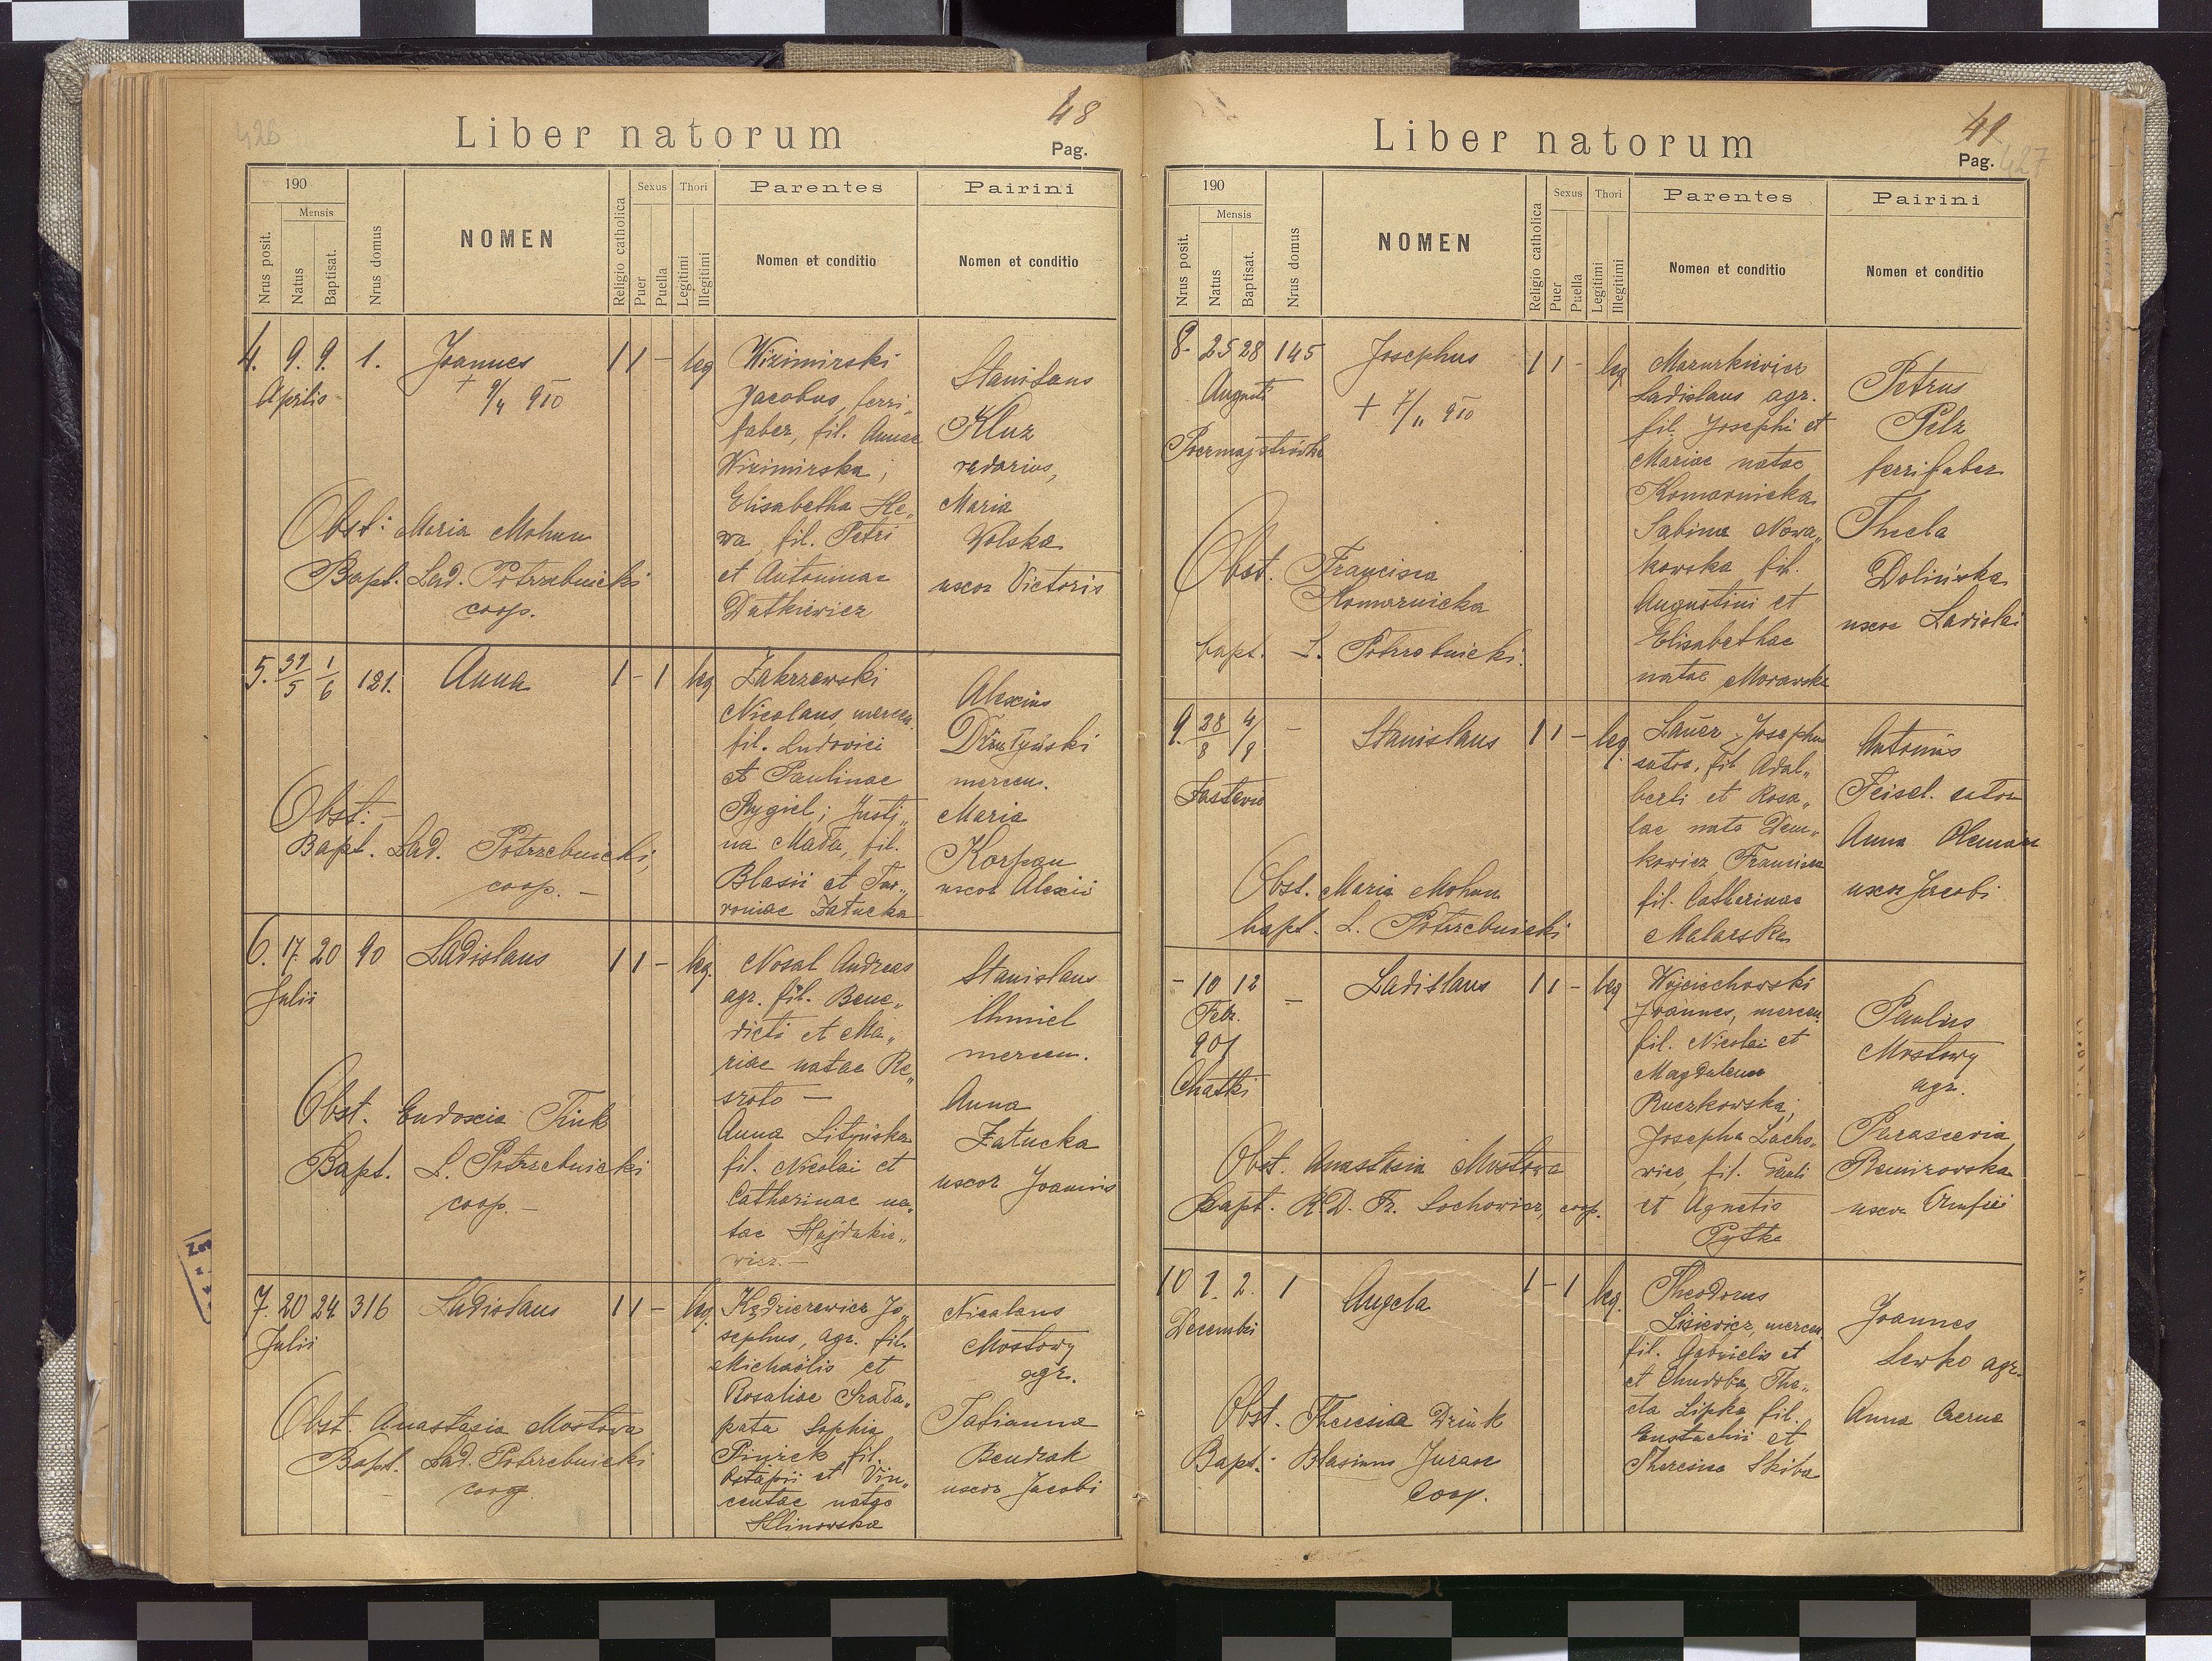 426
48
Liber natorum
Pag.
190
Mensis
Nrus posit.
Natus
Baptisat.
Nrus domus
NOMEN
Religio catholica
Sexus
Puer
Puella
Thori
Legitimi
Illegitimi
Parentes
Nomen et conditio
Pairini
Nomen et conditio
4. 9. 9. 1. Joannes 1 1 - leg
Aprilis
+ 9/4 910
Wizimirski
Jacobus, ferri„
faber, fil. Annae
Wizimirska;
Elisabetha He„
wa, fil. Petri
et Antoninae
Dutkiewicz
Stanislaus
Kluz
redarius,
Maria
Wolska
uxor Victoris
Obst: Maria Mohun
Bapt. Lad. Potrzebnicki
coop.
5. 31/5 1/6 121. Anna 1 - 1 leg
Zakrzewski
Nicolaus, mercen.
fil. Ludovici
et Paulinae
Rygiel; Justi„
na Mada, fil.
Blasii et
roniae Załucka
Alexius
mercen.
Maria
Korpan
uxor Alexii
Obst: -
Bapt. Lad. Potrzebnicki,
coop. -
6. 17. 20 90 Ladislaus 1 1 - leg.
Julii
Nosal Andreas
agr. fil. Bene„
dicti et Ma„
riae natae Re„
szoto -
Anna Lityńska
fil. Nicolai et
Catharinae na„
tae Hajdukie„
wicz. -
Stanislaus
Chmiel
mercen.
Anna
Załucka
uxor Joannis
Obst. Eudoxia Tink
Bapt. L. Potrzebnicki
coop. -
7. 20 24 316 Ladislaus 1 1 - leg.
Julii
Kędzierewicz Jo„
sephus, agr. fil.
Michaëlis et
Rosaliae
pata Sophia
fil.
Ostapii et Vin„
centae natae
Hlinowska
Nicolaus
Mostowy
agr.
Tatianna
Bendrak
uxor Jacobi
Obst. Anastasia Mostowa
Bapt. Lad. Potrzebnicki
coop
49
Liber natorum
Pag. 427
190
Mensis
Nrus posit.
Natus
Baptisat.
Nrus domus
NOMEN
Religio catholica
Sexus
Puer
Puella
Thori
Legitimi
Illegitimi
Parentes
Nomen et conditio
Pairini
Nomen et conditio
8. 25 28 145 Josephus 1 1 - leg
Augusti
+ 7/11 910
Mazurkiewicz
Ladislaus agr.
fil. Josephi et
Mariae natae
Komarnicka
Sabina Nowa„
kowska fil.
Augustini et
Elisabethae
natae Morawska
Petrus
Pelz
ferrifaber
Thecla
Dolińska
uxor Ladislai
Obst. Francisca
Komarnicka
bapt. L. Potrzebnicki.
9. 28/8 4/9 - Stanislaus 1 1 - leg.
Lauer Josephus
sutor, fil. Adal„
berti et Rosa„
liae nata Dem„
kowicz, Francisca
fil. Catherinae
Malarska
Antonius
Feisel. sutor
Anna
uxor Jacobi
Obst. Maria Mohun
bapt. L. Potrzebnicki
- 10 12 - Ladislaus 1 1 - leg
Febr.
907
Chatki
Wojciechowski
Joannes, mercen.
fil. Nicolai et
Magdalenae
Ruczkowska;
Josepha Lacho„
wicz, fil. Pauli
et Agnetis
Pytka
Paulus
Mostowy
agr.
Parascevia
Remizowska
uxor Onufrii
Obst. Anastasia Mostowa
Bapt. R.D. Fr. Lochowicz, coop.
10 1. 2. 1 Angela 1 - 1 leg.
Decembri
Theodorus
Lisiewicz, mercen.
fil. Gabrielis et
et Chudoba, The„
cla Lipka fil.
Eustachii et
Theresiae Skiba
Joannes
Lewko agr.
Anna Czerna
Obst. Theresia
Bapt. Blasius Jurasz
Coop.